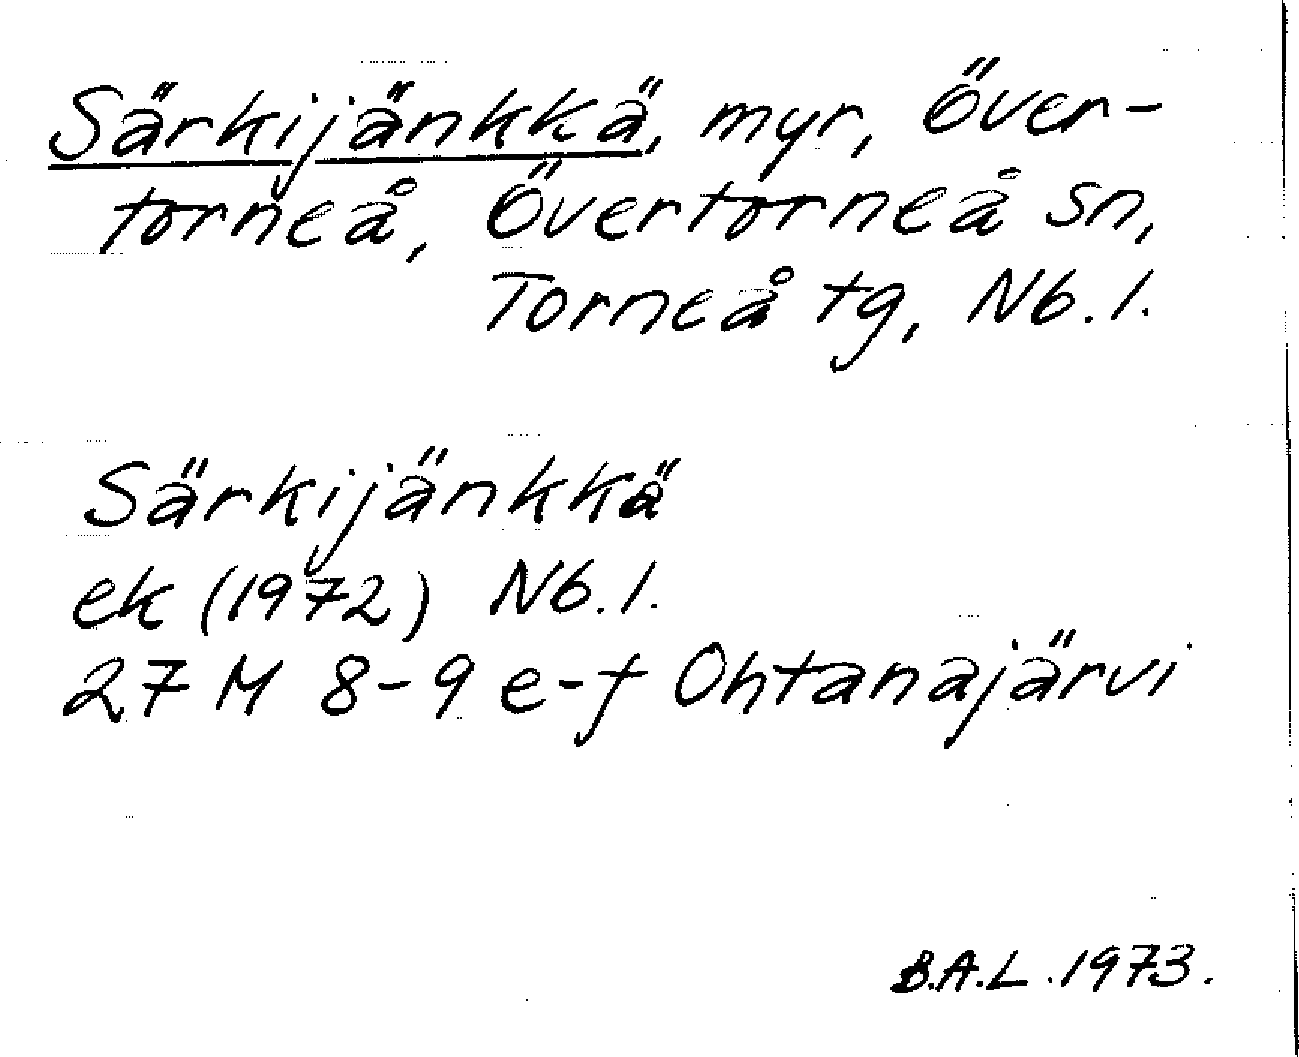 Särkijänkkä, myr, Över-
torneå, Övertorneå sn,
Torneå tg, Nb. l.
Särkijänkkä
ek (1972) Nb. l.
27 M 8-9 e-f Ohtanajärvi
B.A.L. 1973.